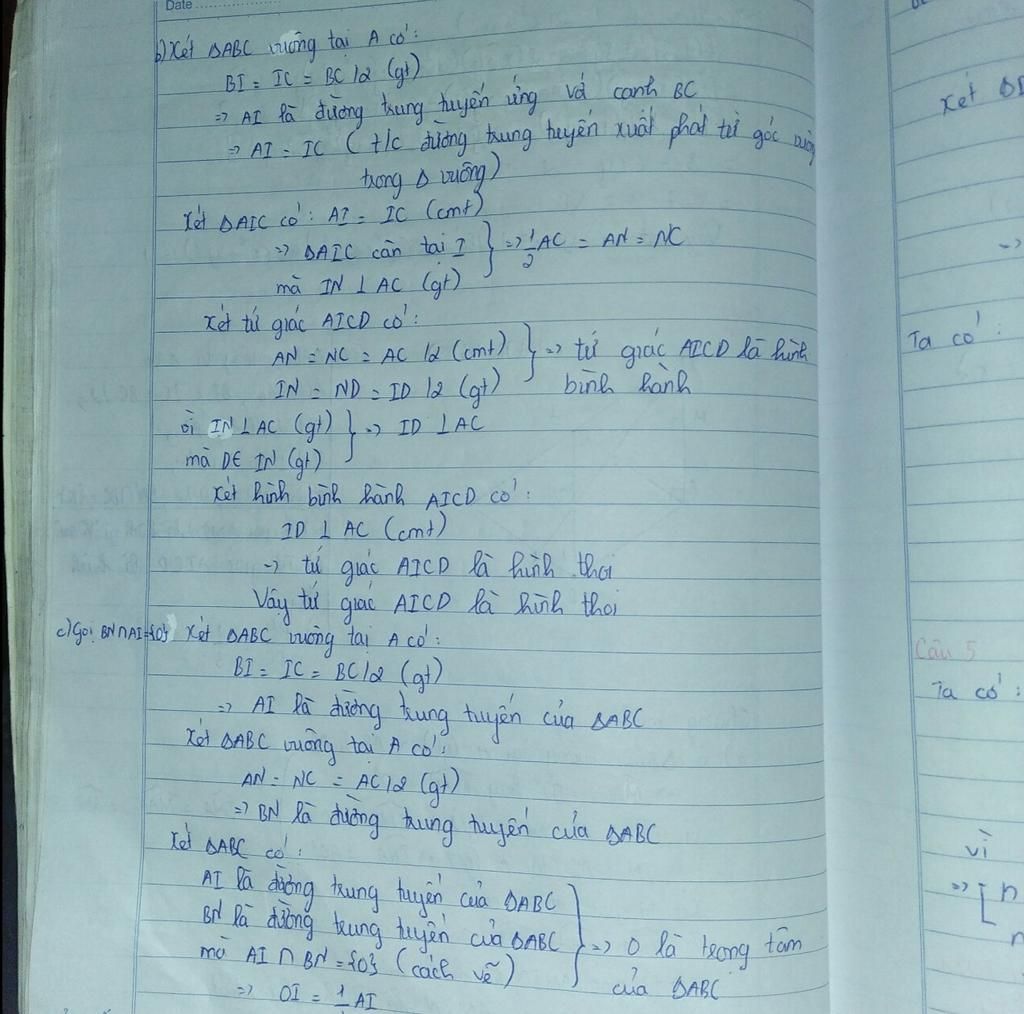 Date
b) Xét ΔABC vuông tại A có:
BI = IC = BC/2 (gt)
=> AI là đường trung tuyến ứng với cạnh BC
=> AI = IC (t/c đường trung tuyến xuất phát từ góc vuông
trong Δ vuông)
Xét ΔAIC có: AI = IC (cmt)
=> ΔAIC cân tại I } => 1/2 AC = AN = NC
mà IN ⊥ AC (gt)
Xét tứ giác AICD có:
AN = NC = AC/2 (cmt) } => tứ giác AICD là hình
IN = ND = ID/2 (gt) bình hành
Vì IN ⊥ AC (gt) } => ID ⊥ AC
mà D∈ IN (gt)
Xét hình bình hành AICD có:
ID ⊥ AC (cmt)
=> tứ giác AICD là hình thoi
Vậy tứ giác AICD là hình thoi
c) Gọi BN∩AI={O} Xét ΔABC vuông tại A có:
BI = IC = BC/2 (gt)
=> AI là đường trung tuyến của ΔABC
Xét ΔABC vuông tại A có:
AN = NC = AC/2 (gt)
=> BN là đường trung tuyến của ΔABC
Xét ΔABC có:
AI là đường trung tuyến của ΔABC
BN là đường trung tuyến của ΔABC } => O là trọng tâm
mà AI ∩ BN = {O} (cách vẽ) của ΔABC
=> OI = 1 AI
Xét
=>
Ta có:
Câu 5
Ta có:
vì
=> [ n